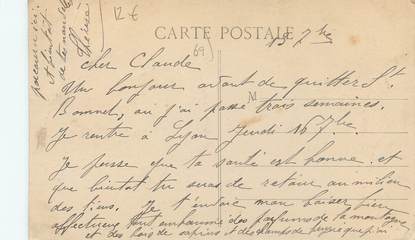 12 €
CARTE POSTALE
69
15 7bre
cher Claude
Un bonjour avant de quitter St.
Bonnet, où j'ai passé trois semaines.
Je rentre à Lyon Jeudi 16 7bre.
Je pense que ta santé est bonne et
que bientôt tu seras de retour au milieu
des tiens. Je t'envoie mon baiser bien
affectueux tout embaumé des parfums de la montagne
et des bois de sapins et des champs de que j'ai
parcourus ici.
et bientôt
de tes nouvelles